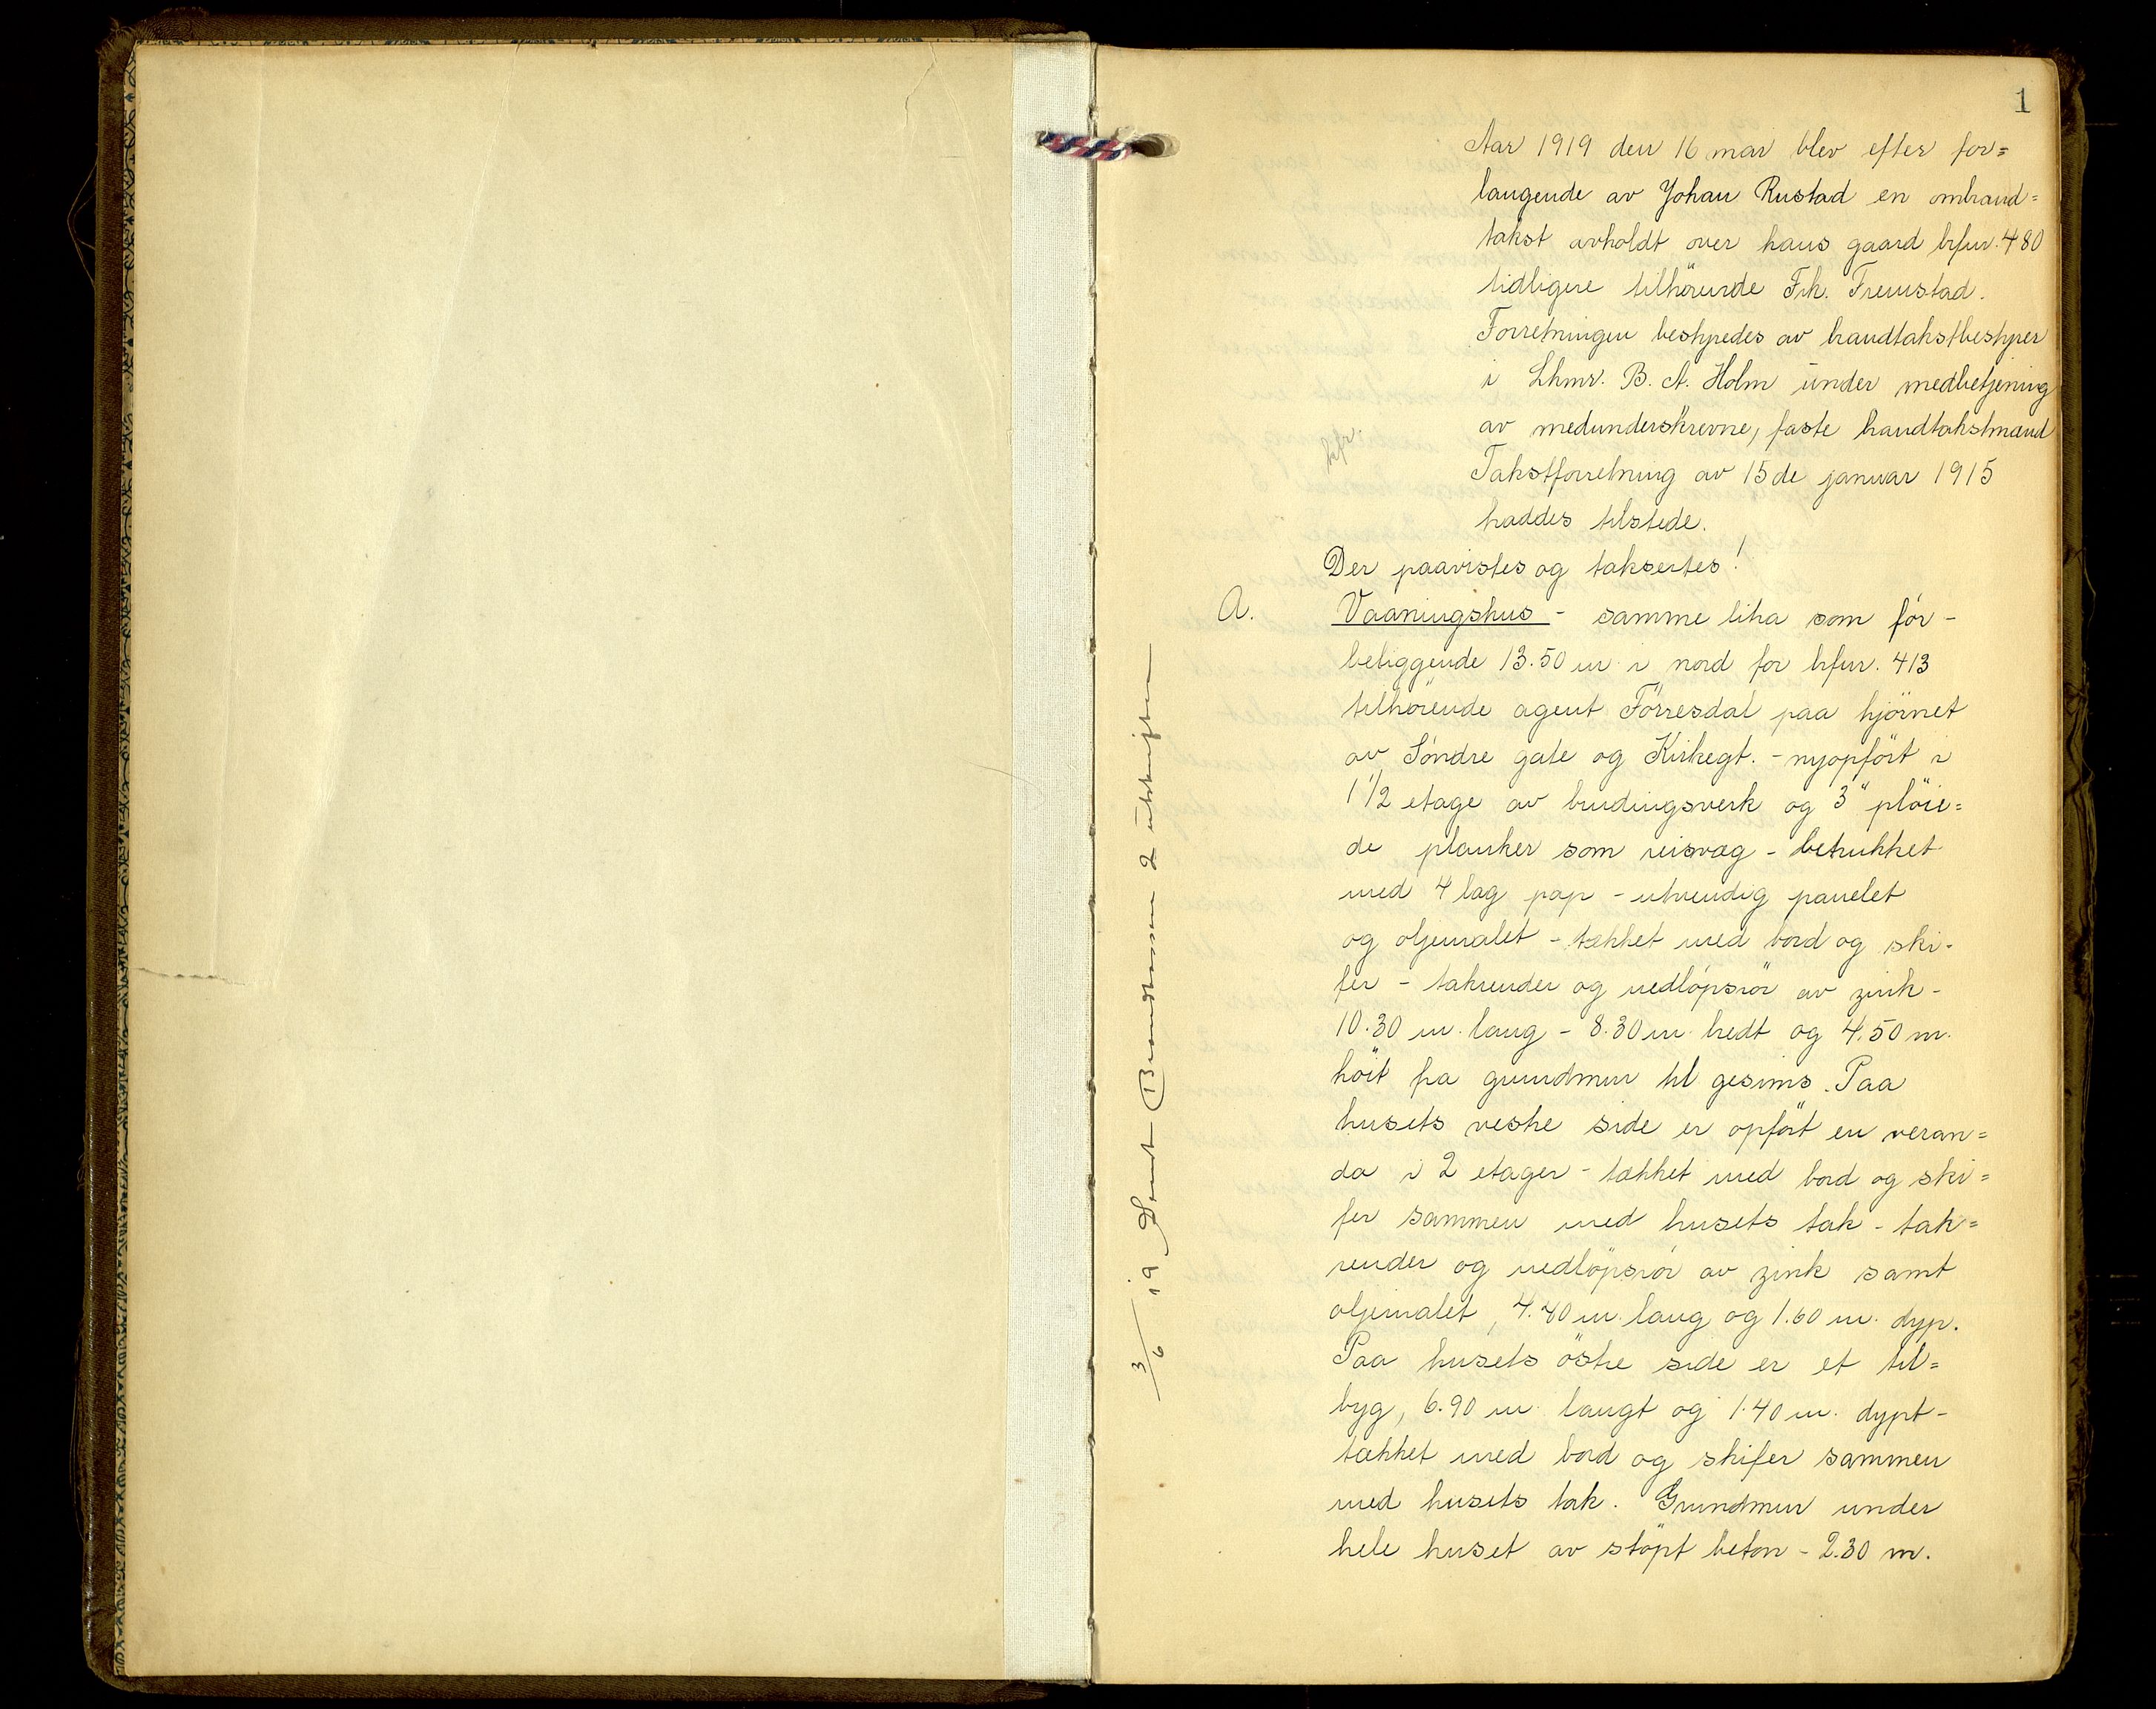 1
Aar 1919 den 16 mai blev efter for=
langende av Johan Rustad en ombrand=
takst avholdt over hans gaard brfnr. 480
tidligere tilhörende Frk. Fremstad.
Forretningen bestyredes av brandtakstbestyrer
i Lhmr. B. A. Holm under medbetjening
av medunderskrevne, faste brandtakstmænd
Takstforretning av 15 de januar 1915
haddes tilstede.
Der paavistes og taksertes!
A. Vaaningshus - samme litra som för -
beliggende 13.50 m i nord for brfnr. 413
tilhörende agent Förresdal paa hjörnet
av Söndre gate og Kirkegt. - nyopfört i
1 1/2 etage av bindingsverk og 3" plöie=
de planker som reisvæg - betrukket
med 4 lag pap - utvendig panelet
og oljemalet - tækket med bord og ski-
fer - takrender og nedlöpsrör av zink -
10.30 m. lang - 8.30 m. bredt og 4.50 m.
höit fra grundmur til gesims. Paa
husets vestre side er opfört en veran=
da i 2 etager - tækket med bord og ski=
fer sammen med husets tak - tak=
render og nedlöpsrör av zink samt
oljemalet, 4.40 m. lang og 1.60 m. dyp.
Paa husets östre side er et til=
byg, 6.90 m langt og 1.40 m. dypt -
tækket med bord og skifer sammen
med husets tak. Grundmur under
hele huset av stöpt beton - 2.30 m.
3/6 19 Sendt Brandkassen 2 utskrifter